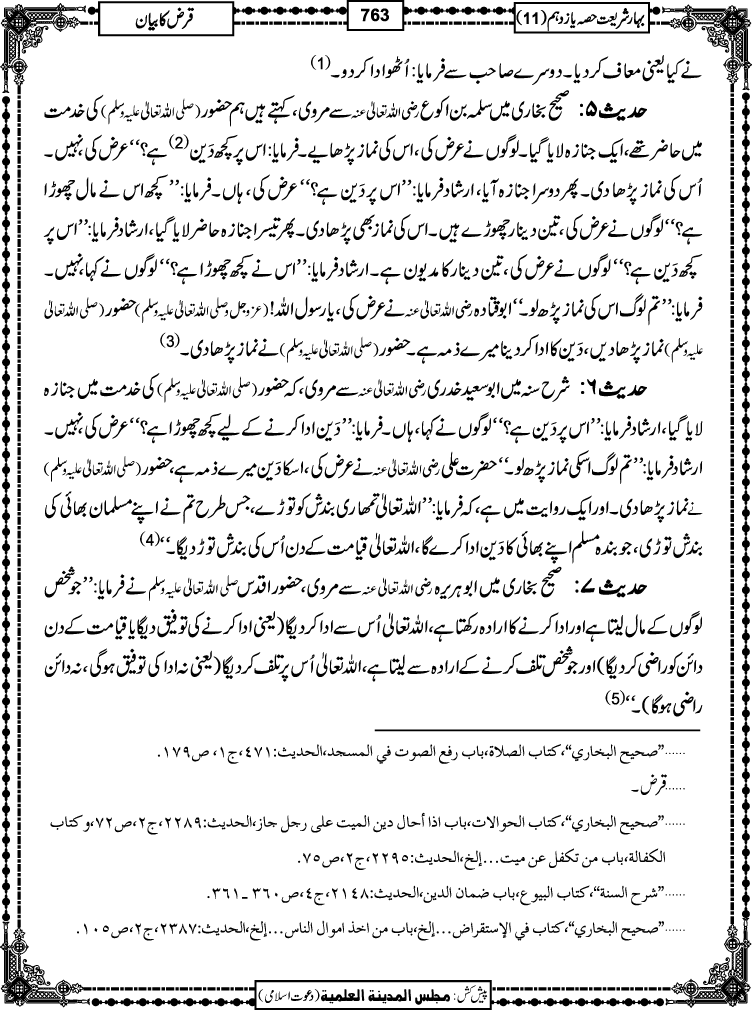 بہارِ شریعت حصہ یازدہم (11)
763
قرض کا بیان
نے کیا یعنی معاف کردیا۔ دوسرے صاحب سے فرمایا: اُٹھو ادا کردو۔ (1)
حدیث ۵: صحیح بخاری میں سلمہ بن اکوع رضی اللہ تعالیٰ عنہ سے مروی، کہتے ہیں ہم حضور (صلی اللہ تعالیٰ علیہ وسلم) کی خدمت
میں حاضر تھے، ایک جنازہ لایا گیا۔ لوگوں نے عرض کی، اس کی نماز پڑھایے۔ فرمایا: اس پر کچھ دَین (2) ہے؟‘‘ عرض کی، نہیں۔
اُس کی نماز پڑھا دی۔ پھر دوسرا جنازہ آیا، ارشاد فرمایا: ’’اس پر دَین ہے؟‘‘ عرض کی، ہاں۔ فرمایا: ’’کچھ اس نے مال چھوڑا
ہے؟‘‘ لوگوں نے عرض کی، تین دینار چھوڑے ہیں۔ اس کی نماز بھی پڑھا دی۔ پھر تیسرا جنازہ حاضر لایا گیا، ارشاد فرمایا: ’’اس پر
کچھ دَین ہے؟‘‘ لوگوں نے عرض کی، تین دینار کا مدیون ہے۔ ارشاد فرمایا: ’’اس نے کچھ چھوڑا ہے؟‘‘ لوگوں نے کہا، نہیں۔
فرمایا: ’’تم لوگ اس کی نماز پڑھ لو۔‘‘ ابوقتادہ رضی اللہ تعالیٰ عنہ نے عرض کی، یارسول اللہ! (عزوجل و صلی اللہ تعالیٰ علیہ وسلم) حضور (صلی اللہ تعالیٰ
علیہ وسلم) نماز پڑھا دیں، دَین کا ادا کر دینا میرے ذمہ ہے۔ حضور (صلی اللہ تعالیٰ علیہ وسلم) نے نماز پڑھا دی۔ (3)
حدیث ۶: شرح سنہ میں ابو سعید خدری رضی اللہ تعالیٰ عنہ سے مروی، کہ حضور (صلی اللہ تعالیٰ علیہ وسلم) کی خدمت میں جنازہ
لایا گیا، ارشاد فرمایا: ’’اس پر دَین ہے؟‘‘ لوگوں نے کہا، ہاں۔ فرمایا: ’’دَین ادا کرنے کے لیے کچھ چھوڑا ہے؟‘‘ عرض کی، نہیں۔
ارشاد فرمایا: ’’تم لوگ اسکی نماز پڑھ لو۔‘‘ حضرت علی رضی اللہ تعالیٰ عنہ نے عرض کی، اسکا دَین میرے ذمہ ہے، حضور (صلی اللہ تعالیٰ علیہ وسلم)
نے نماز پڑھا دی۔ اور ایک روایت میں ہے، کہ فرمایا: ’’اللہ تعالیٰ تمھاری بندش کو توڑے، جس طرح تم نے اپنے مسلمان بھائی کی
بندش توڑی، جو بندہ مسلم اپنے بھائی کا دَین ادا کرے گا، اللہ تعالیٰ قیامت کے دن اُس کی بندش توڑ دیگا۔‘‘ (4)
حدیث ۷: صحیح بخاری میں ابوہریرہ رضی اللہ تعالیٰ عنہ سے مروی، حضورِ اقدس صلی اللہ تعالیٰ علیہ وسلم نے فرمایا: ’’جو شخص
لوگوں کے مال لیتا ہے اور ادا کرنے کا ارادہ رکھتا ہے، اللہ تعالیٰ اُس سے ادا کردیگا (یعنی ادا کرنے کی توفیق دیگا یا قیامت کے دن
دائن کو راضی کردیگا) اور جو شخص تلف کرنے کے ارادہ سے لیتا ہے، اللہ تعالیٰ اُس پر تلف کردیگا (یعنی نہ ادا کی توفیق ہوگی، نہ دائن
راضی ہوگا)۔‘‘ (5)
......”صحیح البخاري“، کتاب الصلاة، باب رفع الصوت في المسجد، الحدیث: ٤٧١، ج١، ص١٧٩.
......قرض۔
......”صحیح البخاري“، کتاب الحوالات، باب اذا أحال دین المیت علی رجل جاز، الحدیث: ٢٢٨٩، ج٢، ص٧٢، و کتاب
الکفالة، باب من تکفل عن میت...إلخ، الحدیث: ٢٢٩٥، ج٢، ص٧٥.
......”شرح السنة“، کتاب البیوع، باب ضمان الدین، الحدیث: ٢١٤٨، ج٤، ص٣٦٠ـ٣٦١.
......”صحیح البخاري“، کتاب في الإستقراض...إلخ، باب من اخذ اموال الناس...إلخ، الحدیث: ٢٣٨٧، ج٢، ص١٠٥.
پیش کش: مجلس المدینة العلمیة (دعوت اسلامی)